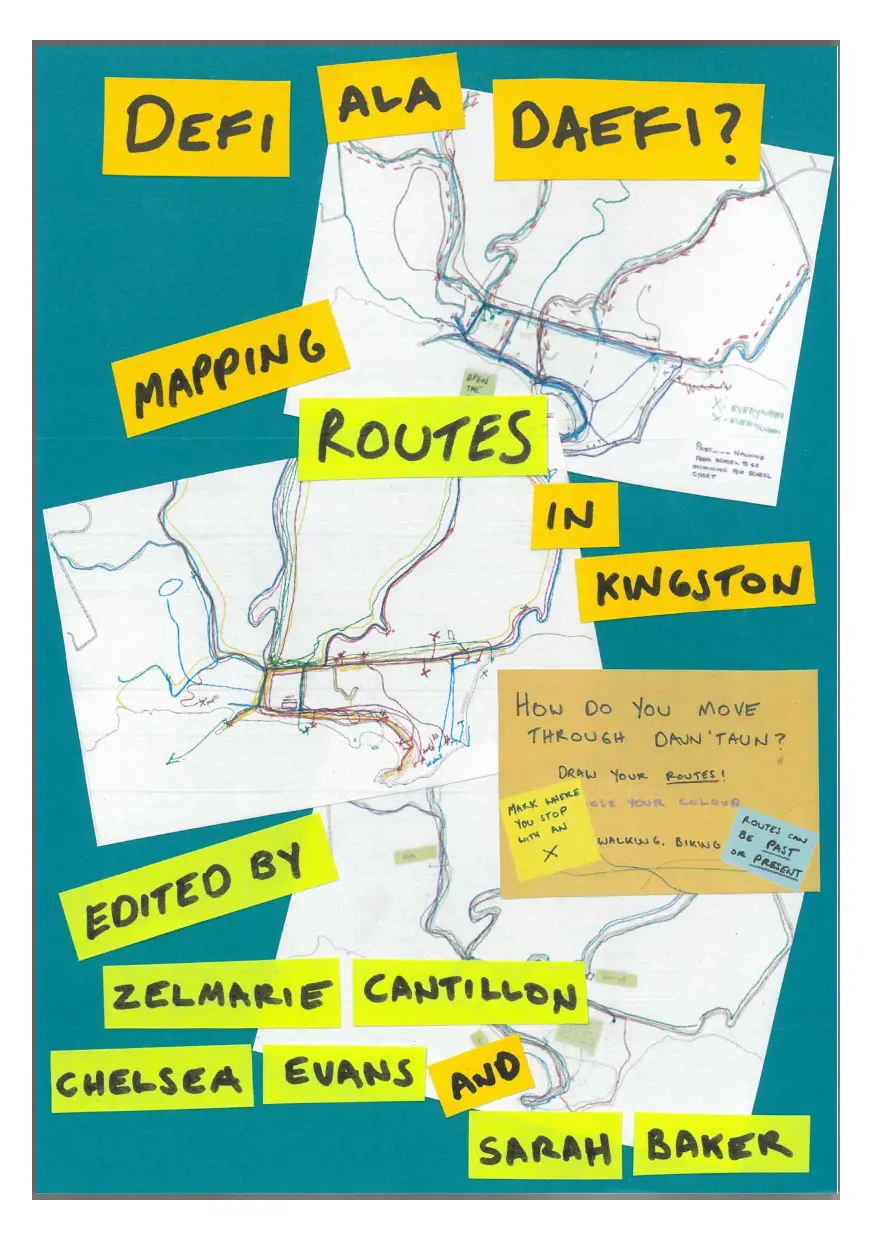 DEFI ALA DAEFI?
OPENS
THE
MAPPING
ROUTES
X: EVERYWHERE
X: EVERYWHERE
PAST ---- WALKING
FROM SCHOOL TO GO
SWIMMING FOR SCHOOL
SPORT
IN
KINGSTON
HOW DO YOU MOVE
THROUGH DAUN'TAUN?
DRAW YOUR ROUTES!
YOUR COLOUR
MARK WHERE
YOU STOP
WITH AN
X
WALKING, BIKING
ROUTES CAN
BE PAST
OR PRESENT
EDITED BY
ZELMARIE CANTILLON
CHELSEA EVANS AND
SARAH BAKER